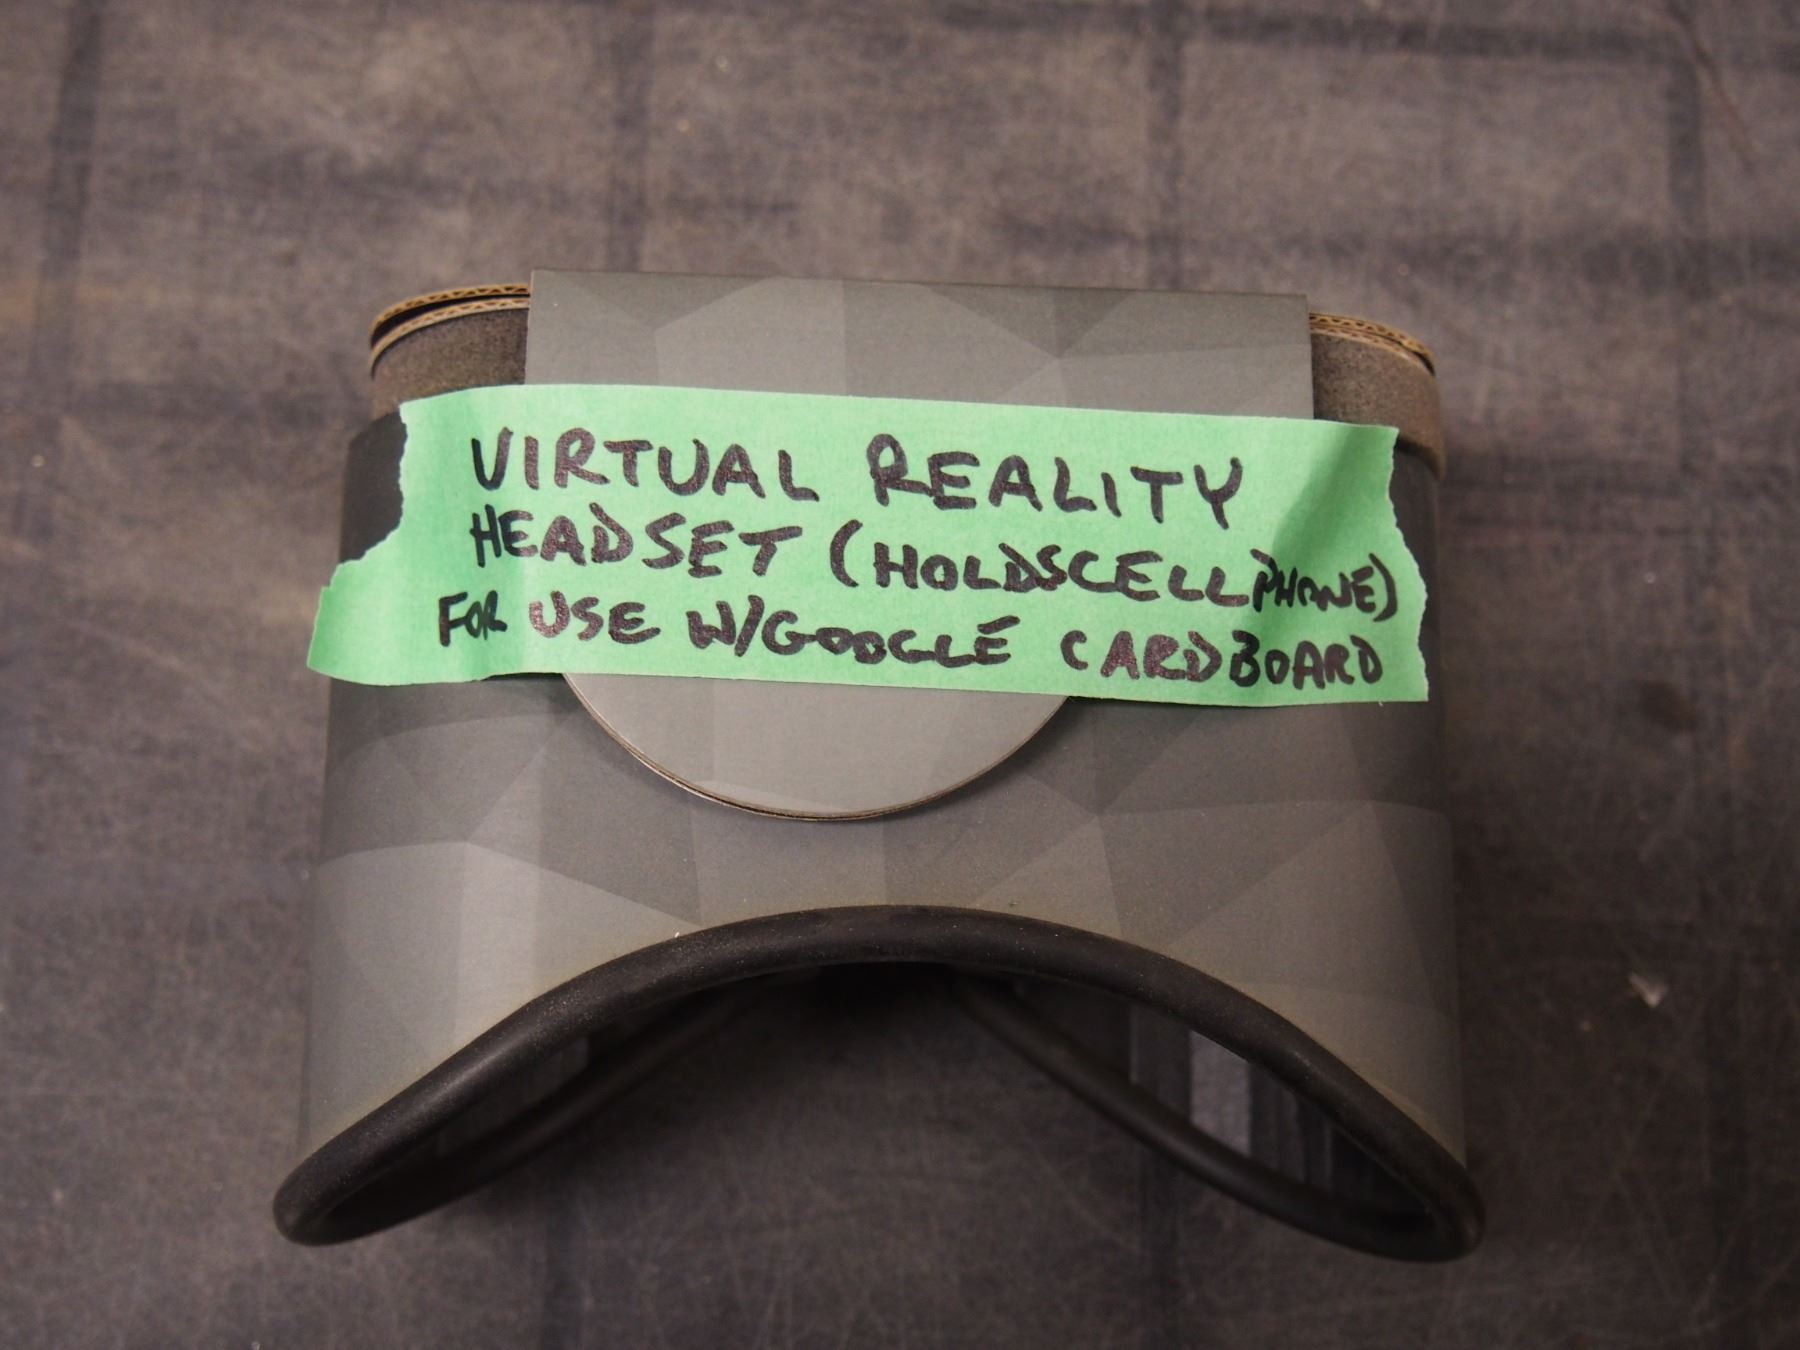 VIRTUAL REALITY
HEADSET (HOLDSCELLPHONE)
FOR USE W/GOOGLE CARDBOARD